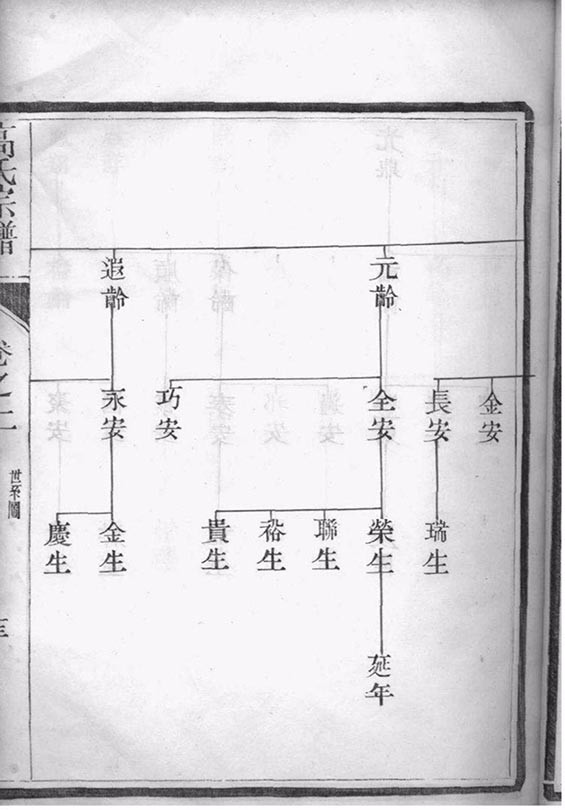 元齡
遐齡
金安
長安
全安
巧安
永安
瑞生
榮生
聯生
裕生
貴生
金生
慶生
延年
高氏宗譜
卷之二
世系圖